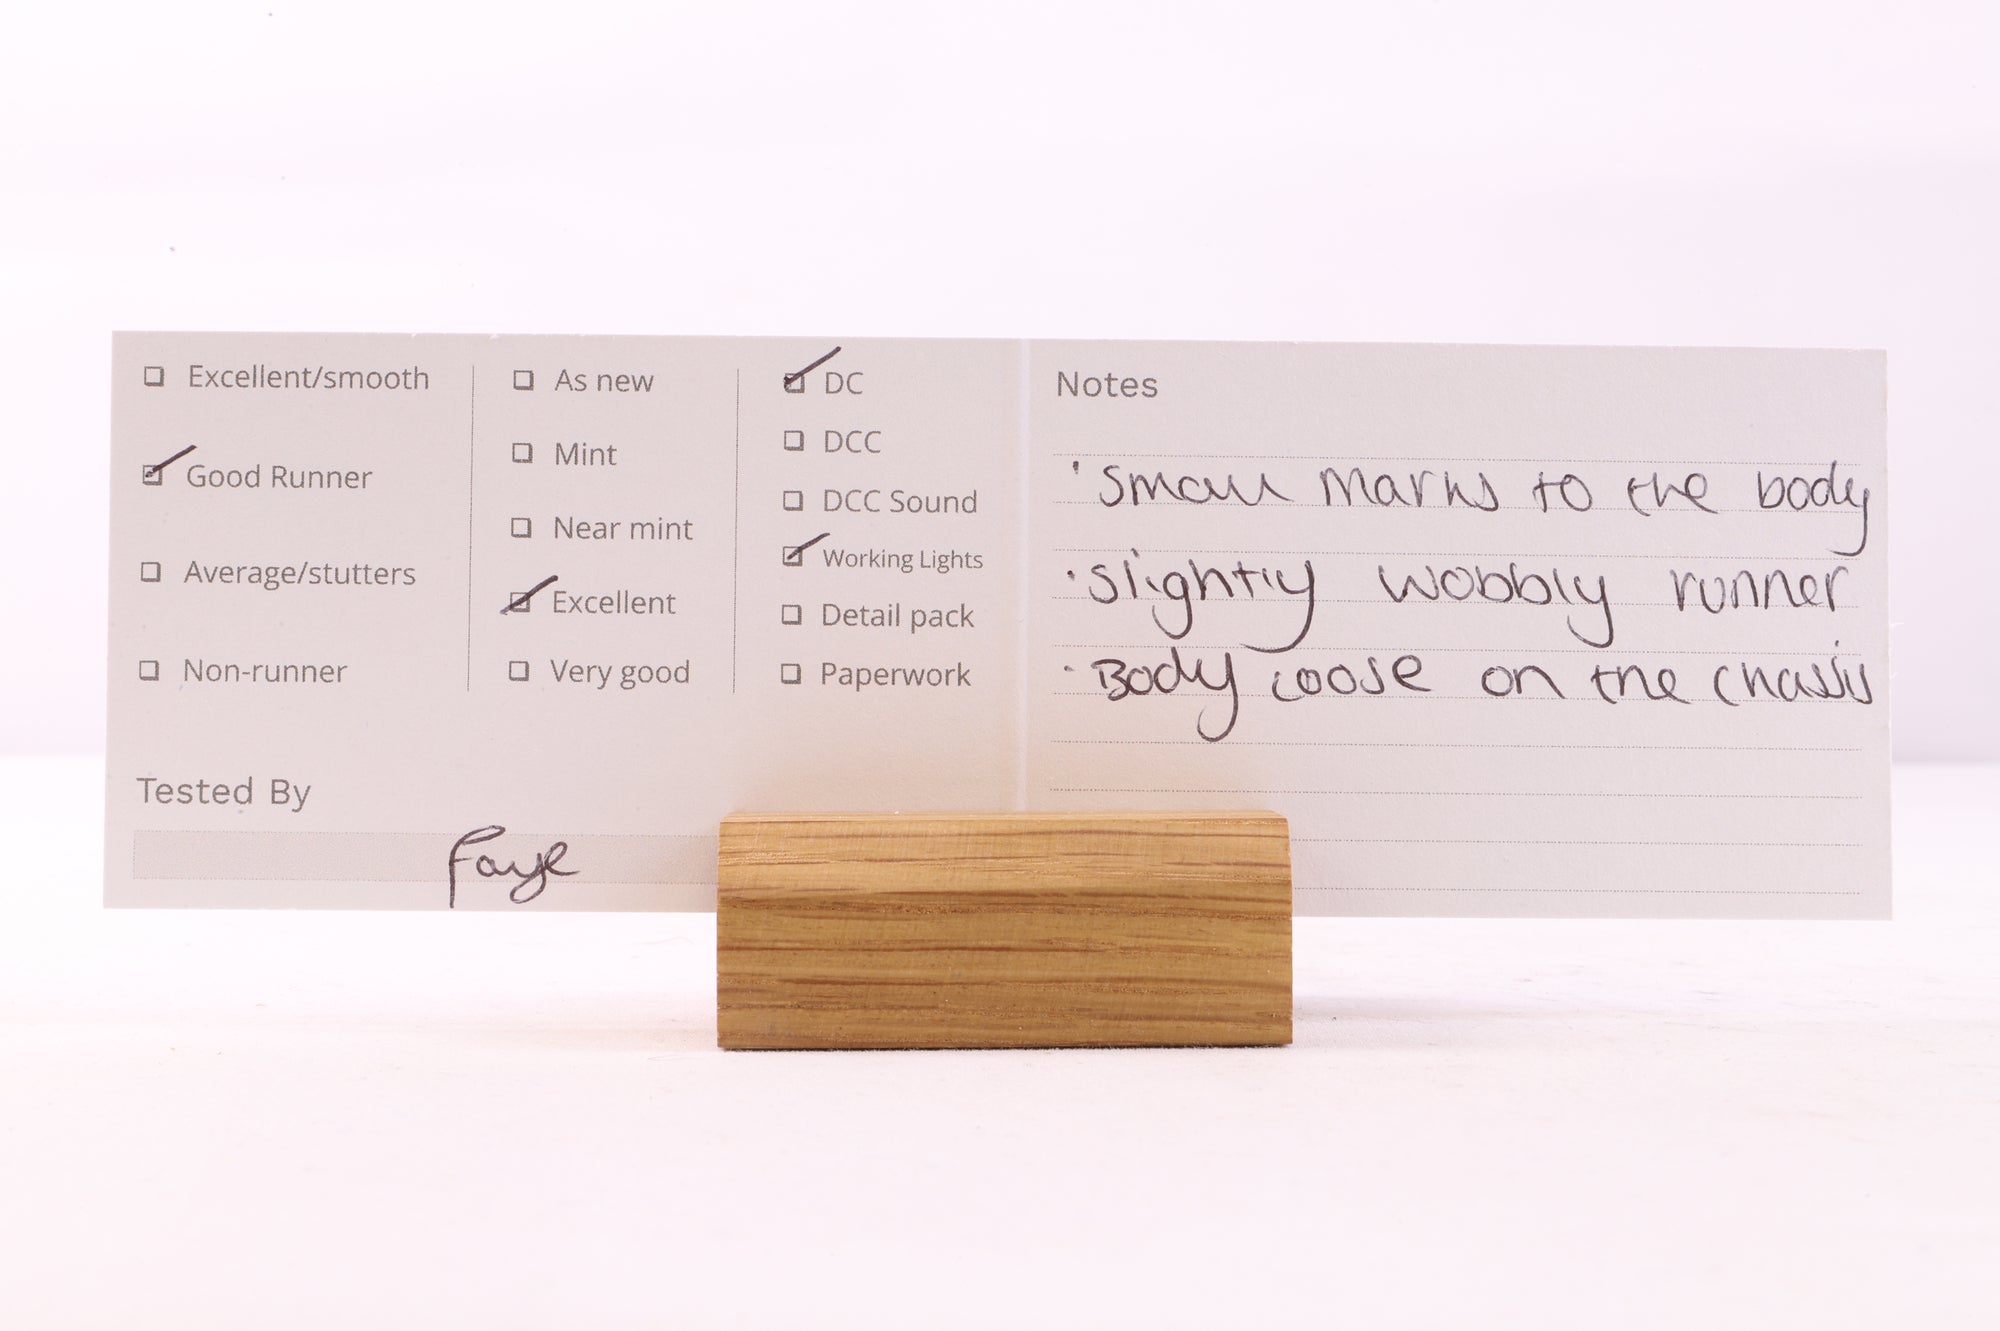 Excellent/smooth
Good Runner
Average/stutters
Non-runner
As new
Mint
Near mint
Excellent
Very good
DC
DCC
DCC Sound
Working Lights
Detail pack
Paperwork
Tested By
Faye
Notes
· Small marks to the body
· Slightly wobbly runner
· Body loose on the chassis